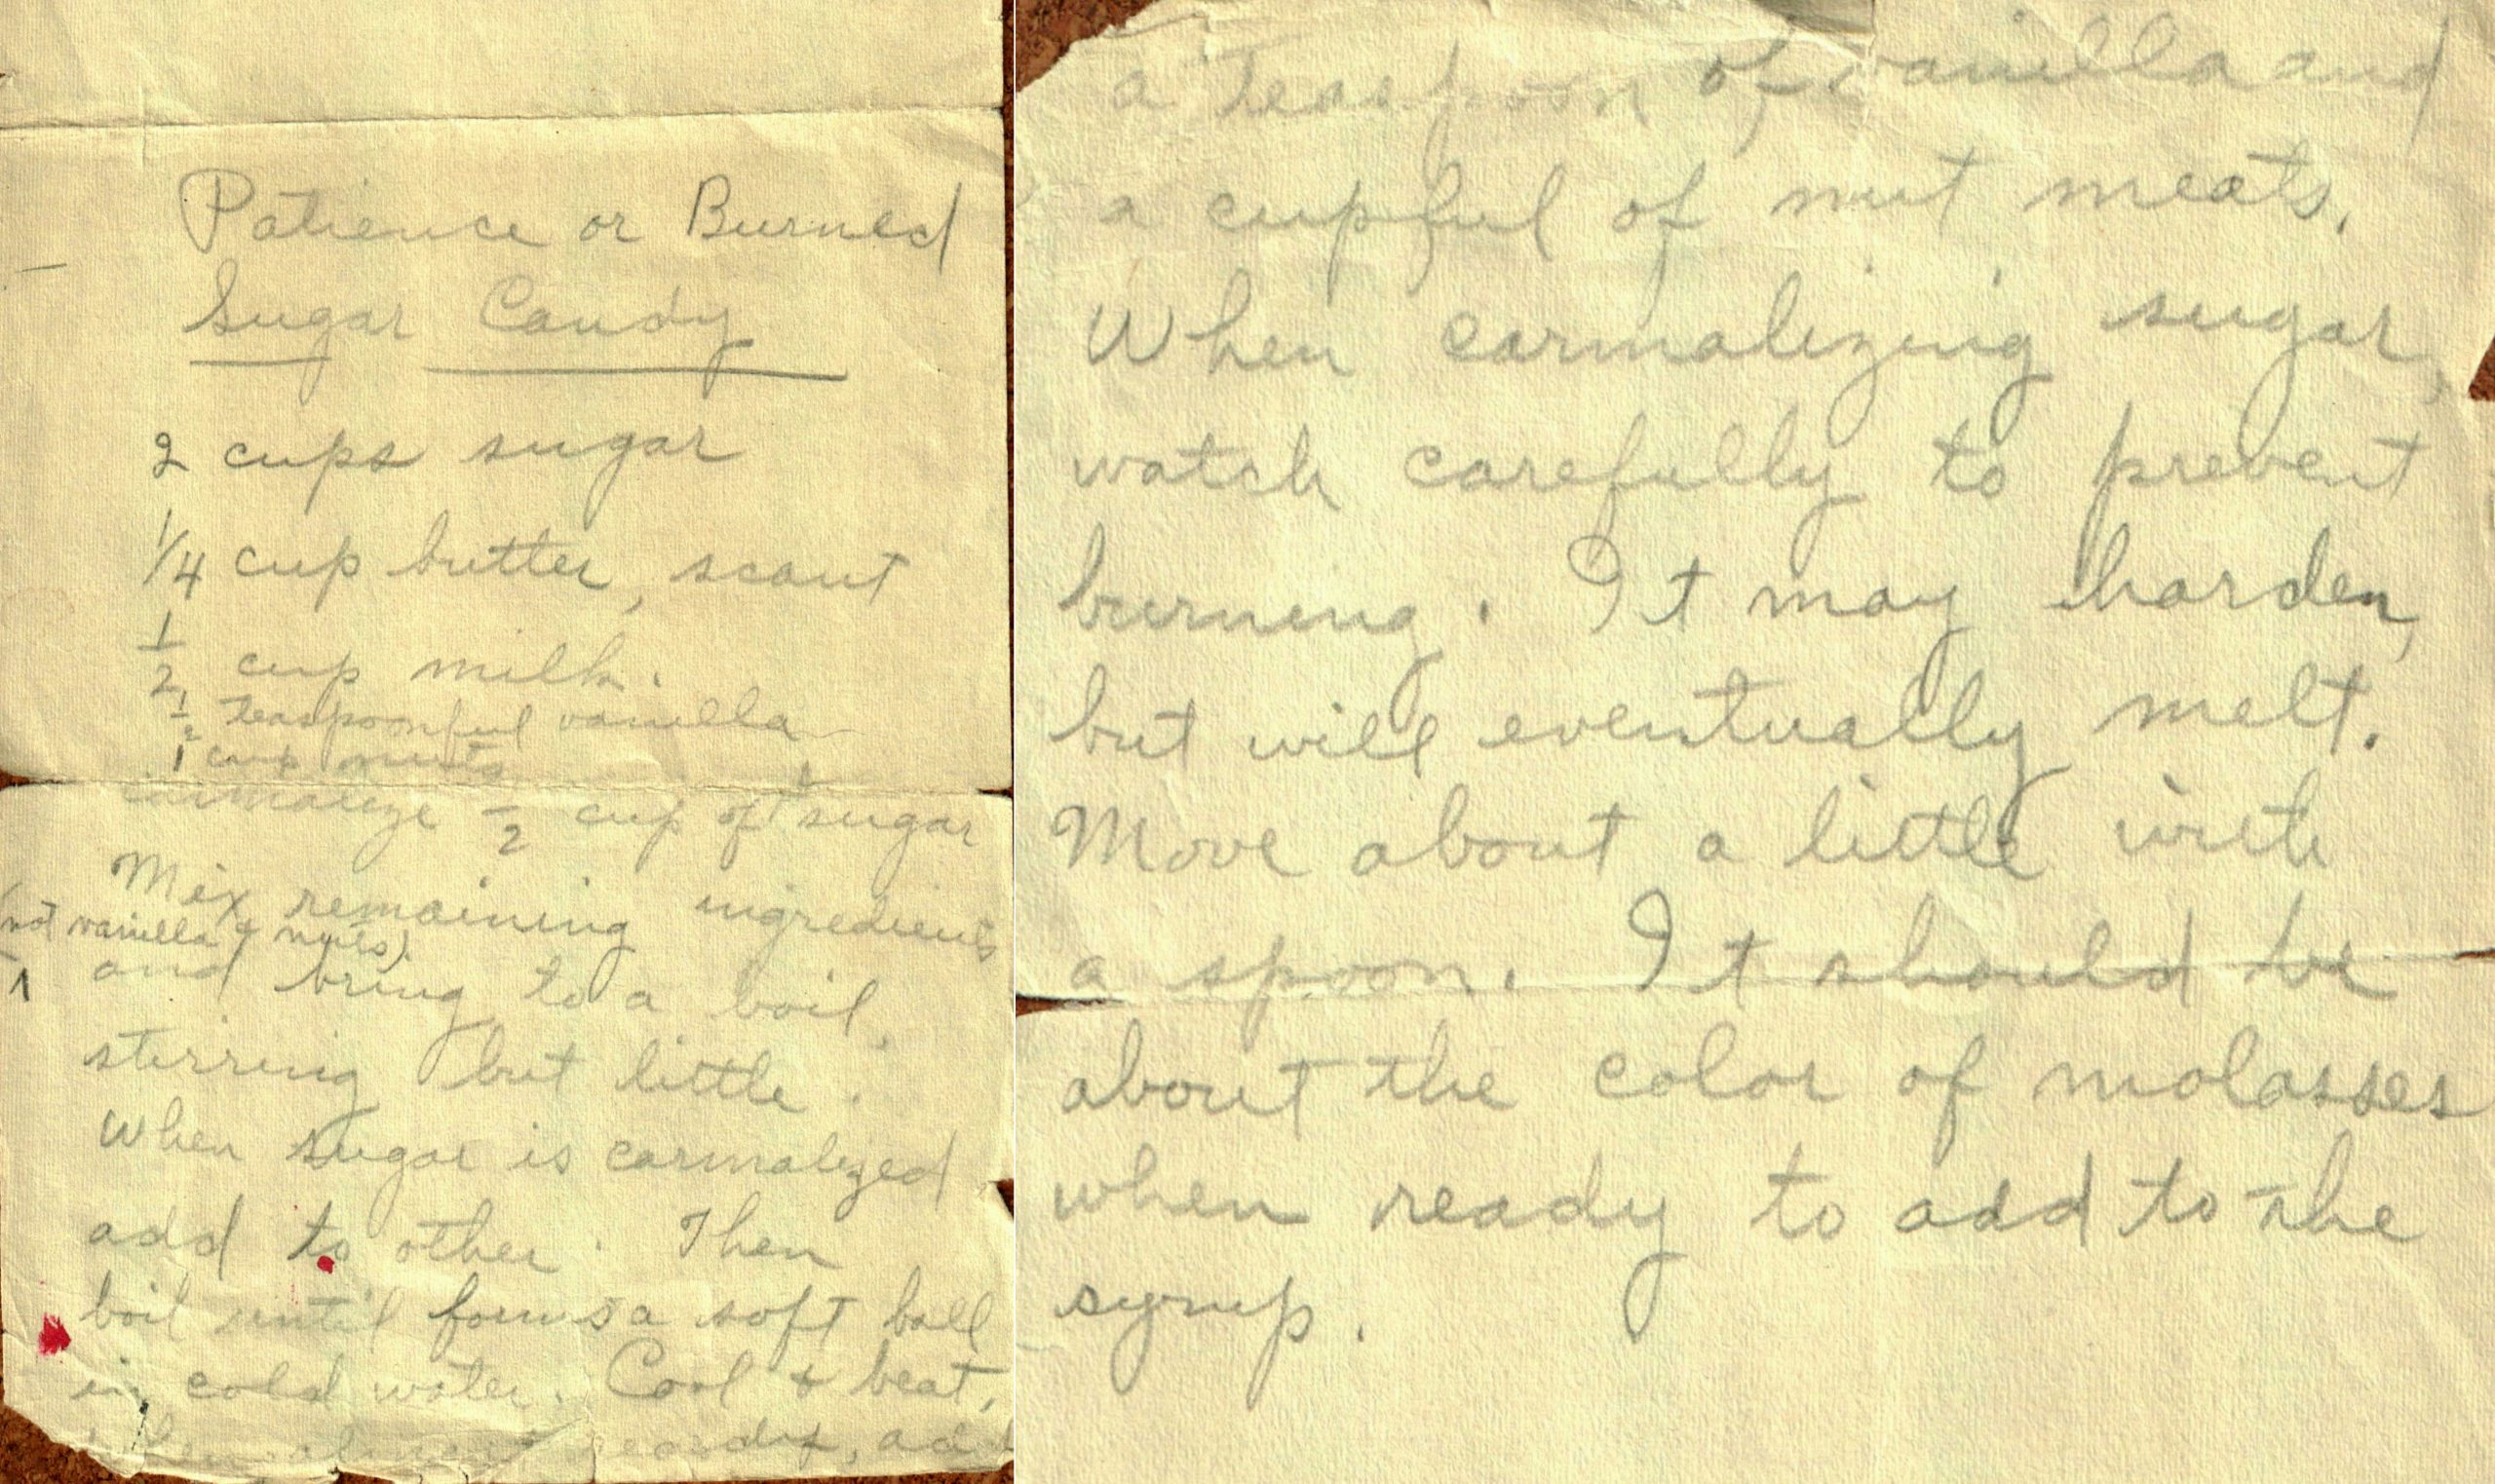 Patience or Burned
Sugar Candy
2 cups sugar
1/4 cup butter, scant
1/2 cup milk.
1/2 teaspoonful vanilla
1 cup nuts
Carmalize 1/2 cup of sugar
Mix remaining ingredients
(not vanilla & nuts)
and bring to a boil,
stirring but little.
When sugar is carmalized
add to other. Then
boil until forms a soft ball
in cold water. Cool & beat,
When almost ready, add
a teaspoon of vanilla and
a cupful of nut meats.
When carmalizing sugar,
watch carefully to prevent
burning. It may harden,
but will eventually melt.
Move about a little with
a spoon. It should be
about the color of molasses
when ready to add to the
syrup.